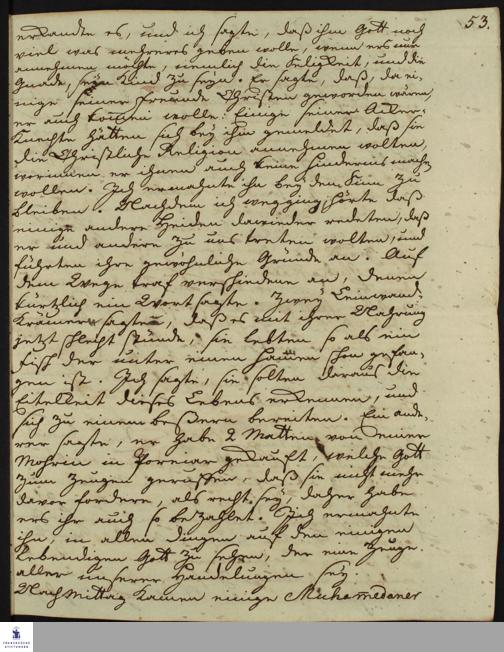 53.
erkandte es, und ich sagte, daß ihm Gott noch
viel was mehreres geben wolle, wenn ers nur
annehmen möchte, nemlich die Seligkeit, und die
Gnade, sein Kind zu seyn. Er sagte, daß, da ei-
nige seiner Freunde Christen geworden wären,
er auch komen wolle. Einige seiner Acker-
Knechte hätten sich bey ihm gemeldet, daß sie
die Christliche Religion annehmen wolten,
worinnen er ihnen auch keine Hinderniß machen
wollen. Ich ermahnte ihn bey dem Sinn zu
bleiben. Nachdem ich wegging, hörte daß
einige andere Heiden dawieder redeten, daß
er und andere zu uns treten wolten, und
führten ihre gewöhnliche Gründe an. Auf
dem Wege traf verschiedene an, denen
kürtzlich ein Wort sagte. Zwey Leinwand-
Krämer sagten, daß es mit ihrer Nahrung
jetzt schlecht stünde, sie lebten so als ein
Fisch der unter einem Hamen schon gefan-
gen ist. Ich sagte, sie solten daraus die
Eitelkeit dieses Lebens erkennen, und
sich zu einem beßern bereiten. Ein ande-
rer sagte, er habe 2 Matten von einer
Mohrin in Poreiar gekauft, welche Gott
zum Zeugen geruffen, daß sie nicht mehr
davor fordere, als recht sey, daher habe
ers ihr auch so bezahlet. Ich ermahnte
ihn, in allen dingen auf den einigen
lebendigen Gott zu sehen, der ein Zeuge
aller unserer Handelungen sey.
Nach Mittag kamen einige Muhamedaner
FRANCKESCHE
STIFTUNGEN